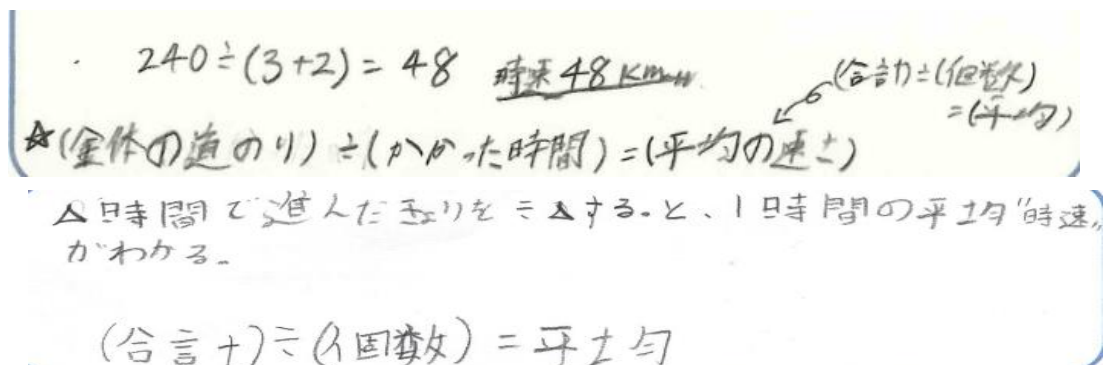 240÷(3+2)=48 時速48km
(合計)÷(個数)
=(平均)
☆(全体の道のり)÷(かかった時間)=(平均の速さ)
△時間で進んだきょりを÷△する。と、1時間の平均"時速"
がわかる。
(合計)÷(個数)=平均